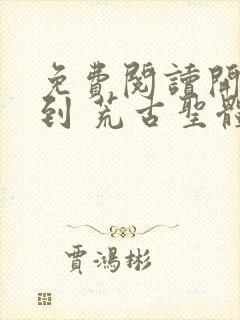 免費閱讀開
到 荒古聖體
賈鴻彬